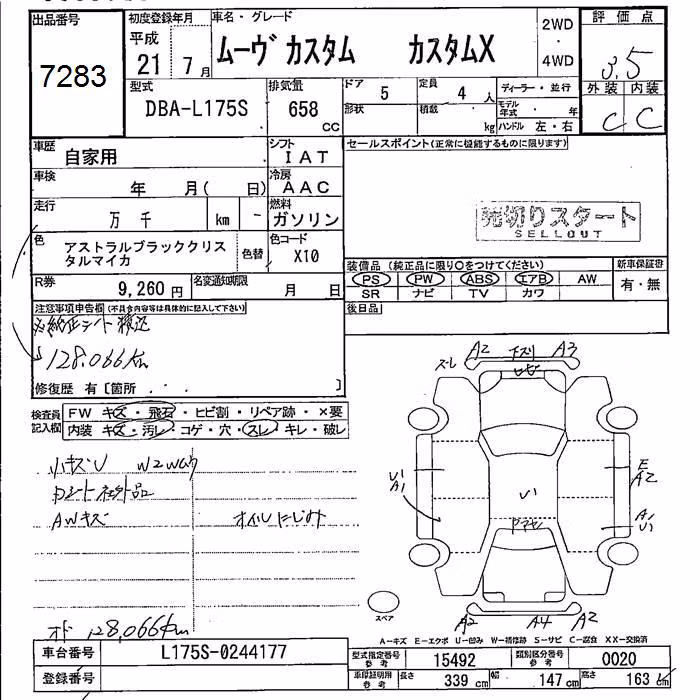 出品番号
7283
初度登録年月
平成
21 7月
車名・グレード
ムーヴ カスタム カスタムX
2WD
・
4WD
評価点
3.5
外装 内装
C C
型式
DBA-L175S
排気量
658
CC
ドア
5
形状
定員
4 人
積載
kg
ディーラー・並行
モデル年式 ・ 年
ハンドル 左・右
車歴
自家用
シフト
IAT
車検
年 月( 日)
冷房
AAC
走行
万 千 km -
燃料
ガソリン
色
アストラルブラッククリス
タルマイカ
色替
色コード
X10
R券
9,260円
名変通知期限
月 日
セールスポイント(正常に機能するものに限ります)
売切りスタート
SELLOUT
装備品(純正品に限り○をつけてください)
PS PW ABS エアB AW
SR ナビ TV カワ
新車保証書
有・無
後日品
注意事項申告欄(不具合内容等は具体的に記入して下さい)
128,066km
修復歴 有〔箇所 ・ ・ ・ 〕
検査員
記入欄
FW キズ・飛石・ヒビ割・リペア跡・×要
内装 キズ・汚レ・コゲ・穴・スレ・キレ・破レ
小キズU W2W有
社外品
AWキズ オイルにじみ
オド 128,066km
ズレ A2 A3
U1
A1
U1
E
A2
A1
U1
スペア
A2 A4 A2
A-キズ E-エクボ U-凹み W-補修跡 S-サビ C-腐食 XX-交換済
車台番号
L175S-0244177
登録番号
型式指定番号
参考
15492
類別区分番号
参考
0020
車庫証明用
参考
長さ
339 cm
幅
147 cm
高さ
163 cm